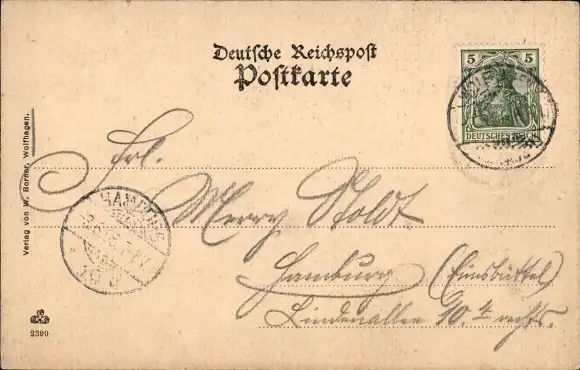 Deutsche Reichspost
Postkarte
5 5
DEUTSCHES REICH
Frl.
Merry Stoldt
Hamburg (Eimsbüttel)
Lindenallee 70. I rechts.
HAMBURG
Verlag von W. Borner, Wolfhagen.
2390